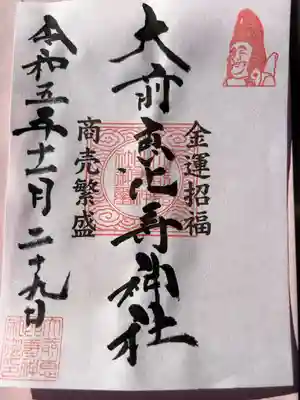 金運招福
大前恵比寿神社
商売繁盛
令和五年十一月二十九日